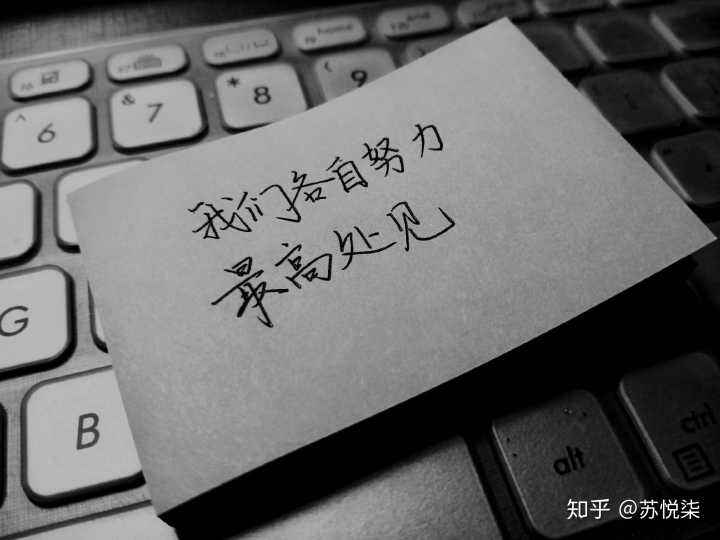 ^
6
&
7
*
8
(
9
我们各自努力
最高处见
G
B
alt
ctrl
知乎 @苏悦柒